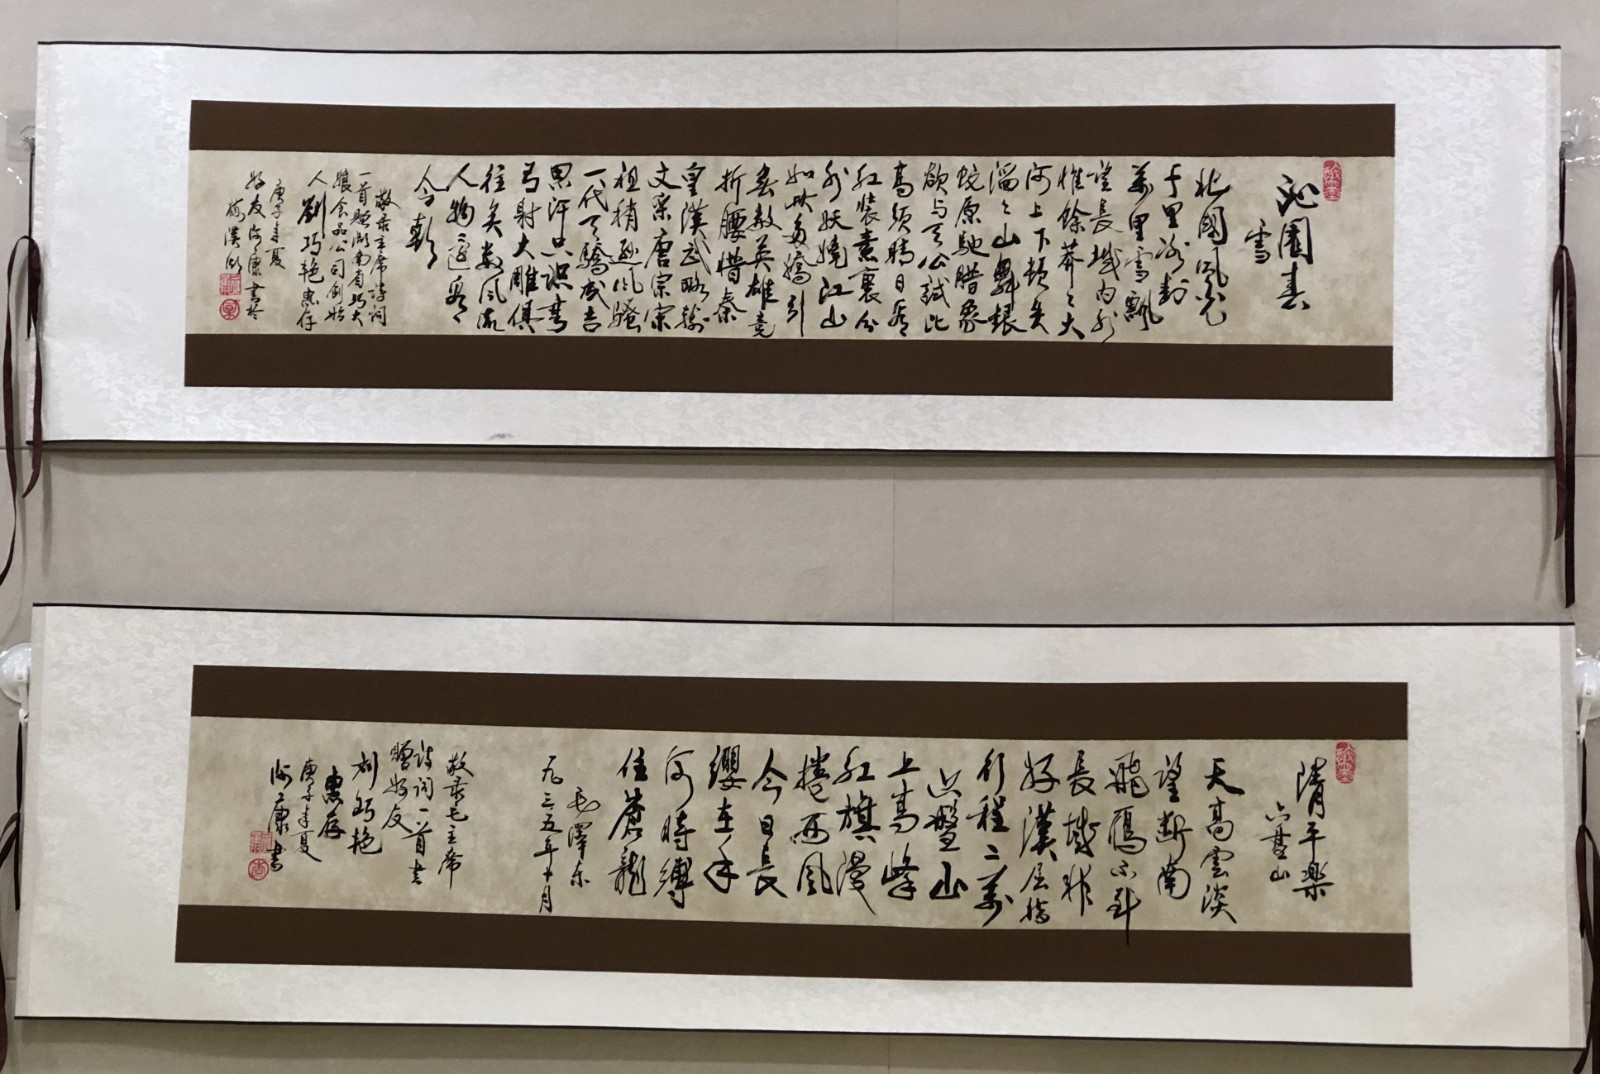 沁園春
雪
北國風光
千里冰封
萬里雪飄
望長城內外
惟餘莽々大
河上下頓失
滔々山舞銀
蛇原馳臘象
欲与天公試比
高須晴日看
紅裝素裹分
外妖嬈江山
如此多嬌引
無數英雄竟
折腰惜秦
皇漢武略輸
文采唐宗宋
祖稍遜風騷
一代天驕成吉
思汗只識彎
弓射大雕俱
往矣數風流
人物還看
今朝
敬录主席诗词
一首赠湖南省巧大
娘食品公司創始
人劉巧艳惠存
庚子年夏
好友海康書於
清平樂
六盤山
天高雲淡
望断南
飛雁不到
長城非
好漢屈指
行程二萬
六盤山
上高峰
紅旗漫
捲西風
今日長
纓在手
何時縛
住蒼龍
毛澤东
一九三五年十月
敬录毛主席
诗词一首书
赠好友
刘巧艳
惠存
庚子年夏
海康書